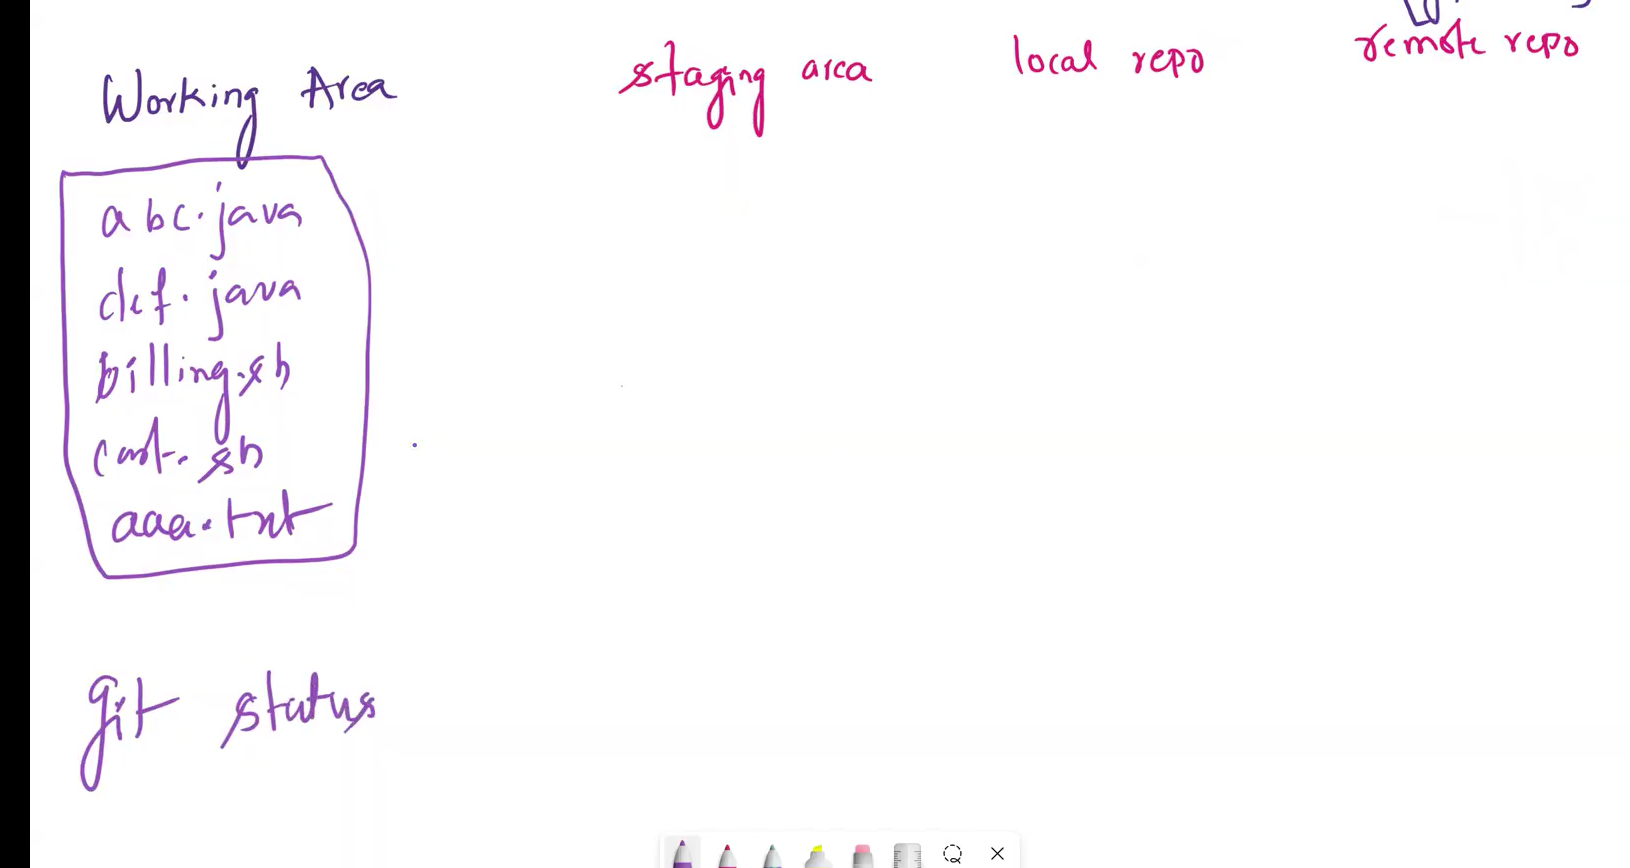 Working Area
staging area
local repo
remote repo
abc.java
def.java
billing.sh
cart.sh
aaa.txt
git status